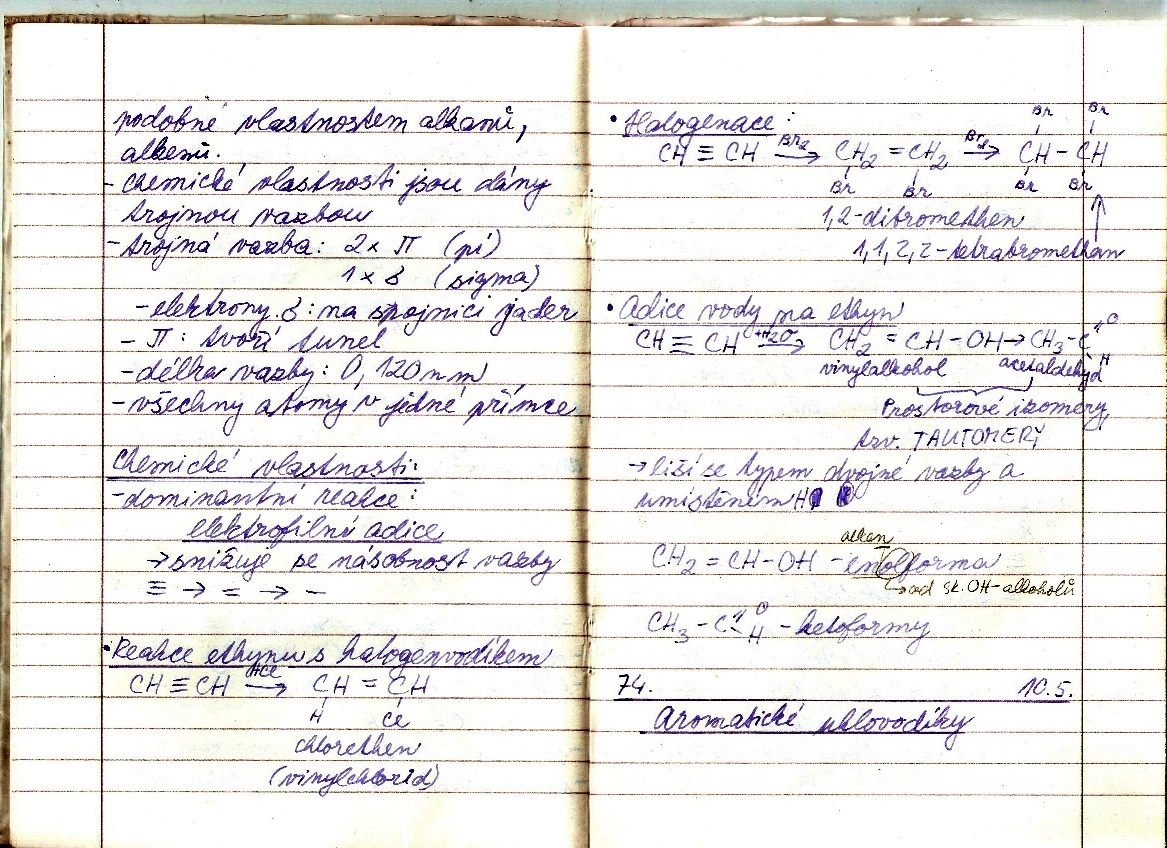 podobné vlastnostem alkanů,
alkenů.
- chemické vlastnosti jsou dány
trojnou vazbou
- trojná vazba: 2x π (pí)
1x δ (sigma)
- elektrony δ: na spojnici jader
- π: tvoří tunel
- délka vazby: 0,120nm
- všechny atomy v jedné přímce
Chemické vlastnosti:
- dominantní reakce:
elektrofilní adice
→ snižuje se násobnost vazby
≡ → = → -
• Reakce ethynu s halogenvodíkem
CH ≡ CH HCl→ CH = CH
H Cl
chlorethen
(vinylchlorid)
• Halogenace:
Br Br
CH ≡ CH Br2→ CH2 = CH2 Br2→ CH - CH
Br Br Br Br
1,2-dibromethen
1,1,2,2-tetrabromethan
• Adice vody na ethyn
CH ≡ CH +H2O→ CH2 = CH - OH → CH3 - C O H
vinylalkohol acetaldehyd
Prostorové izomery,
tzv. TAUTOMERY
→ liší se typem dvojné vazby a
umístěním H
alken
CH2 = CH - OH - enolforma
→ od sk. OH-alkoholů
CH3 - C O H - ketoformy
74. 10.5.
Aromatické uhlovodíky